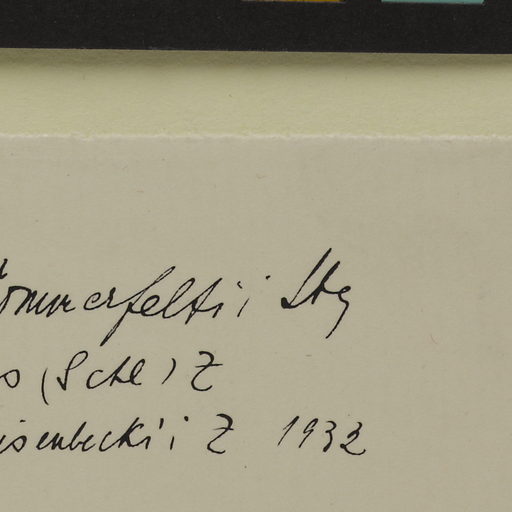 ommerfeltii Stg
s (Schl) Z
isenbeckii Z 1932